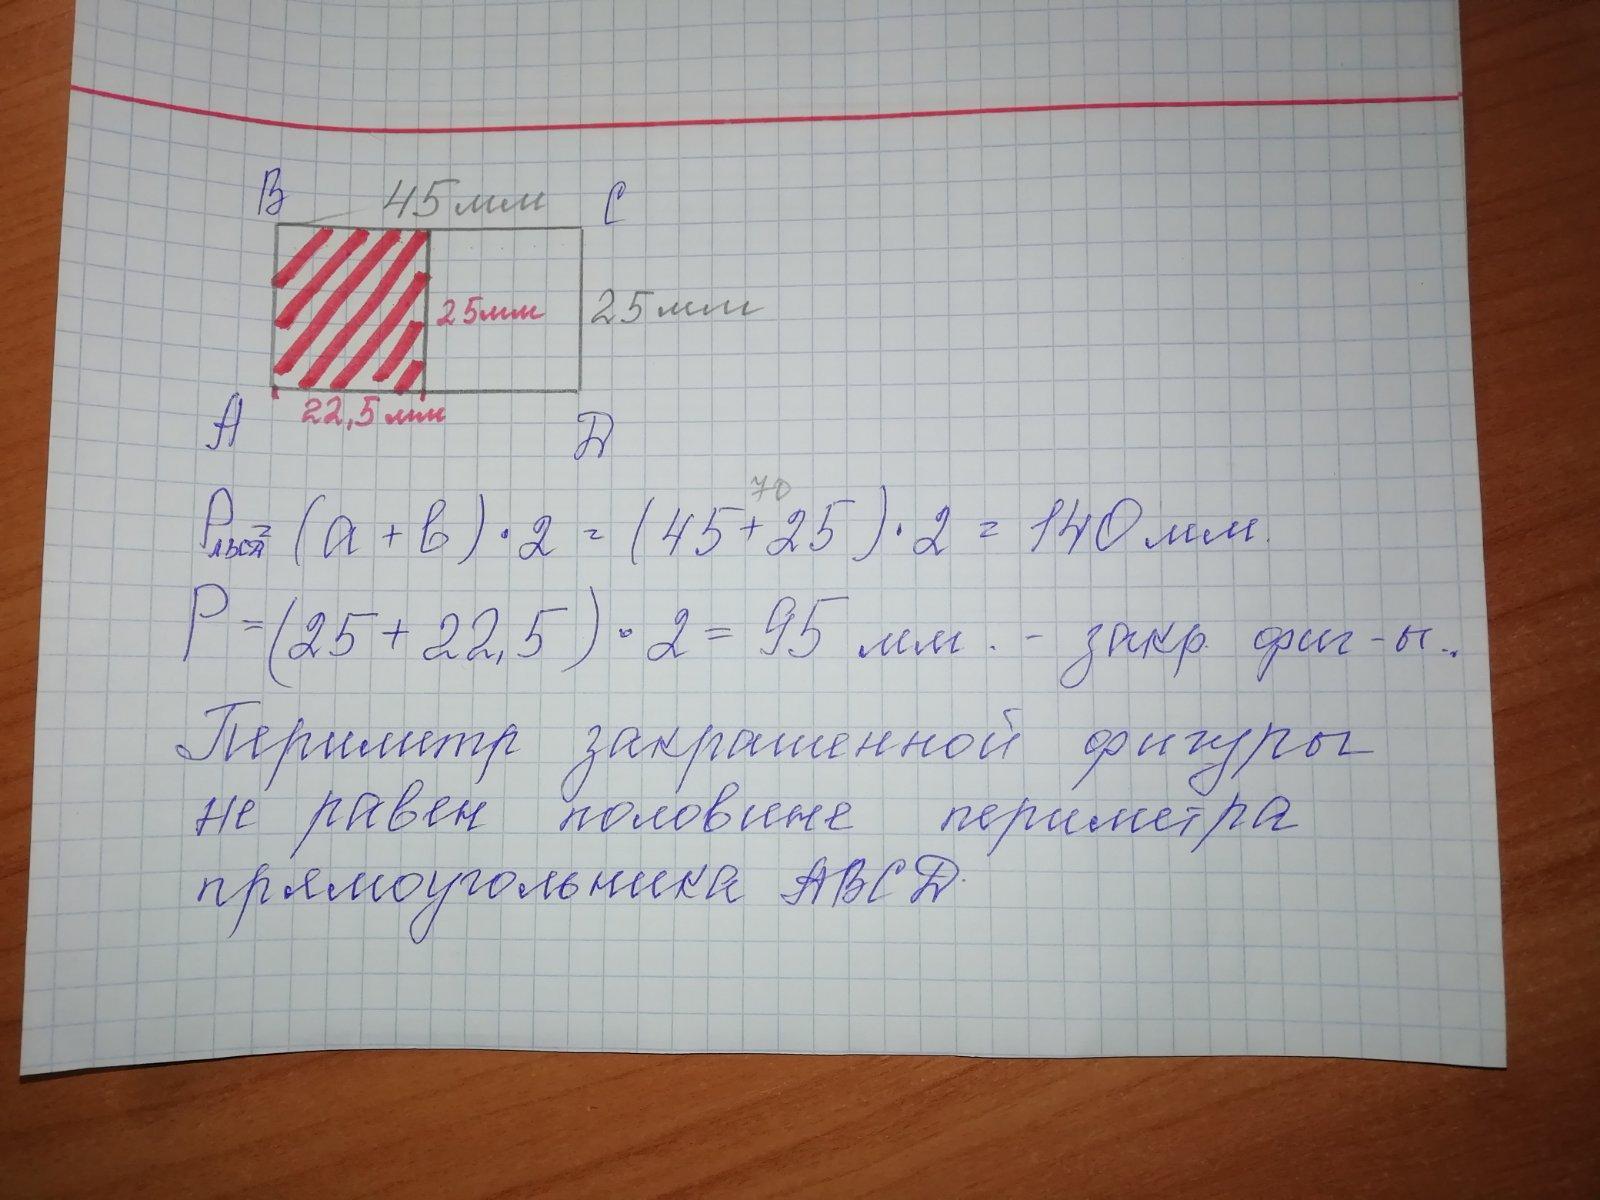 B 45мм C
25мм 25мм
A 22,5мм D
70
P = (a + b) · 2 = (45 + 25) · 2 = 140 мм.
P = (25 + 22,5) · 2 = 95 мм. - закр. фиг-ы.
Периметр закрашенной фигуры
не равен половине периметра
прямоугольника ABCD.